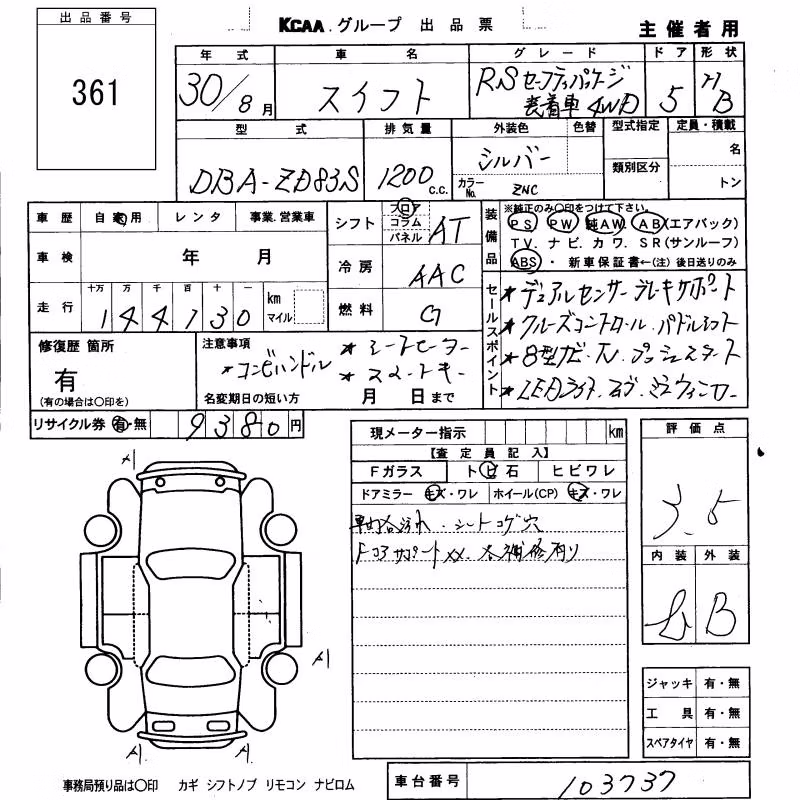 出品番号
361
KCAA グループ 出品票
主催者用
年式 車名 グレード ドア 形状
30/8月 スイフト RSセーフティパッケージ
装着車 4WD 5 HB
型式 排気量 外装色 色替 型式指定 定員・積載
DBA-ZD83S 1200 c.c. シルバー 類別区分 名
カラーNo. ZNC トン
車歴 自家用 レンタ 事業.営業車
シフト フロア コラム パネル AT
車検 年 月
冷房 AAC
走行 十万 万 千 百 十 一
144130 km マイル
燃料 G
装備品 ※純正のみ〇印をつけて下さい。
PS PW 純AW. AB(エアバック)
TV. ナビ. カワ. SR(サンルーフ)
ABS ・ 新車保証書←(注)後日送りのみ
セールスポイント
★デュアルセンサーブレーキサポート
★クルーズコントロール.パドルシフト
★8型ナビ.TV.プッシュスタート
★LEDライト.
修復歴 箇所
有
(有の場合は〇印を)
注意事項 ★シートヒーター
★コンビハンドル ★スマートキー
名変期日の短い方 月 日まで
リサイクル券 有・無 9380円
現メーター指示 km
【査定員記入】
Fガラス トビ石 ヒビワレ
ドアミラー キズ・ワレ ホイール(CP) キズ・ワレ
車内各汚れ.シートコゲ穴
Fコアサポートxx.
評価点
3.5
内装 外装
B
A1
A1
A1
A1
ジャッキ 有・無
工具 有・無
スペアタイヤ 有・無
事務局預り品は〇印 カギ シフトノブ リモコン ナビロム
車台番号 103737